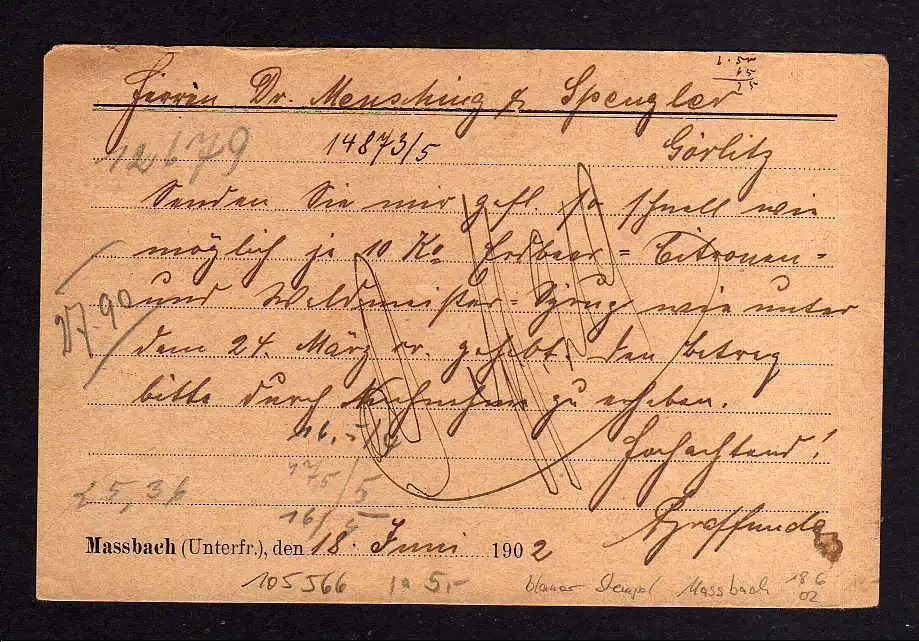 Herren Dr. Mensching & Spengler
14873/5 Görlitz
12679
Senden Sie mir gefl. so schnell wie
möglich je 10 Ko Erdbeer= Citronen=
und Waldmeister=Syrup wie unter
27.90
dem 24. März cr. gehabt. Den Betrag
bitte durch Nachnahme zu erheben.
Hochachtend!
25,36
Massbach (Unterfr.), den 18. Juni 1902
105566 1a 5,-
blauer Stempel Massbach 18 6
02